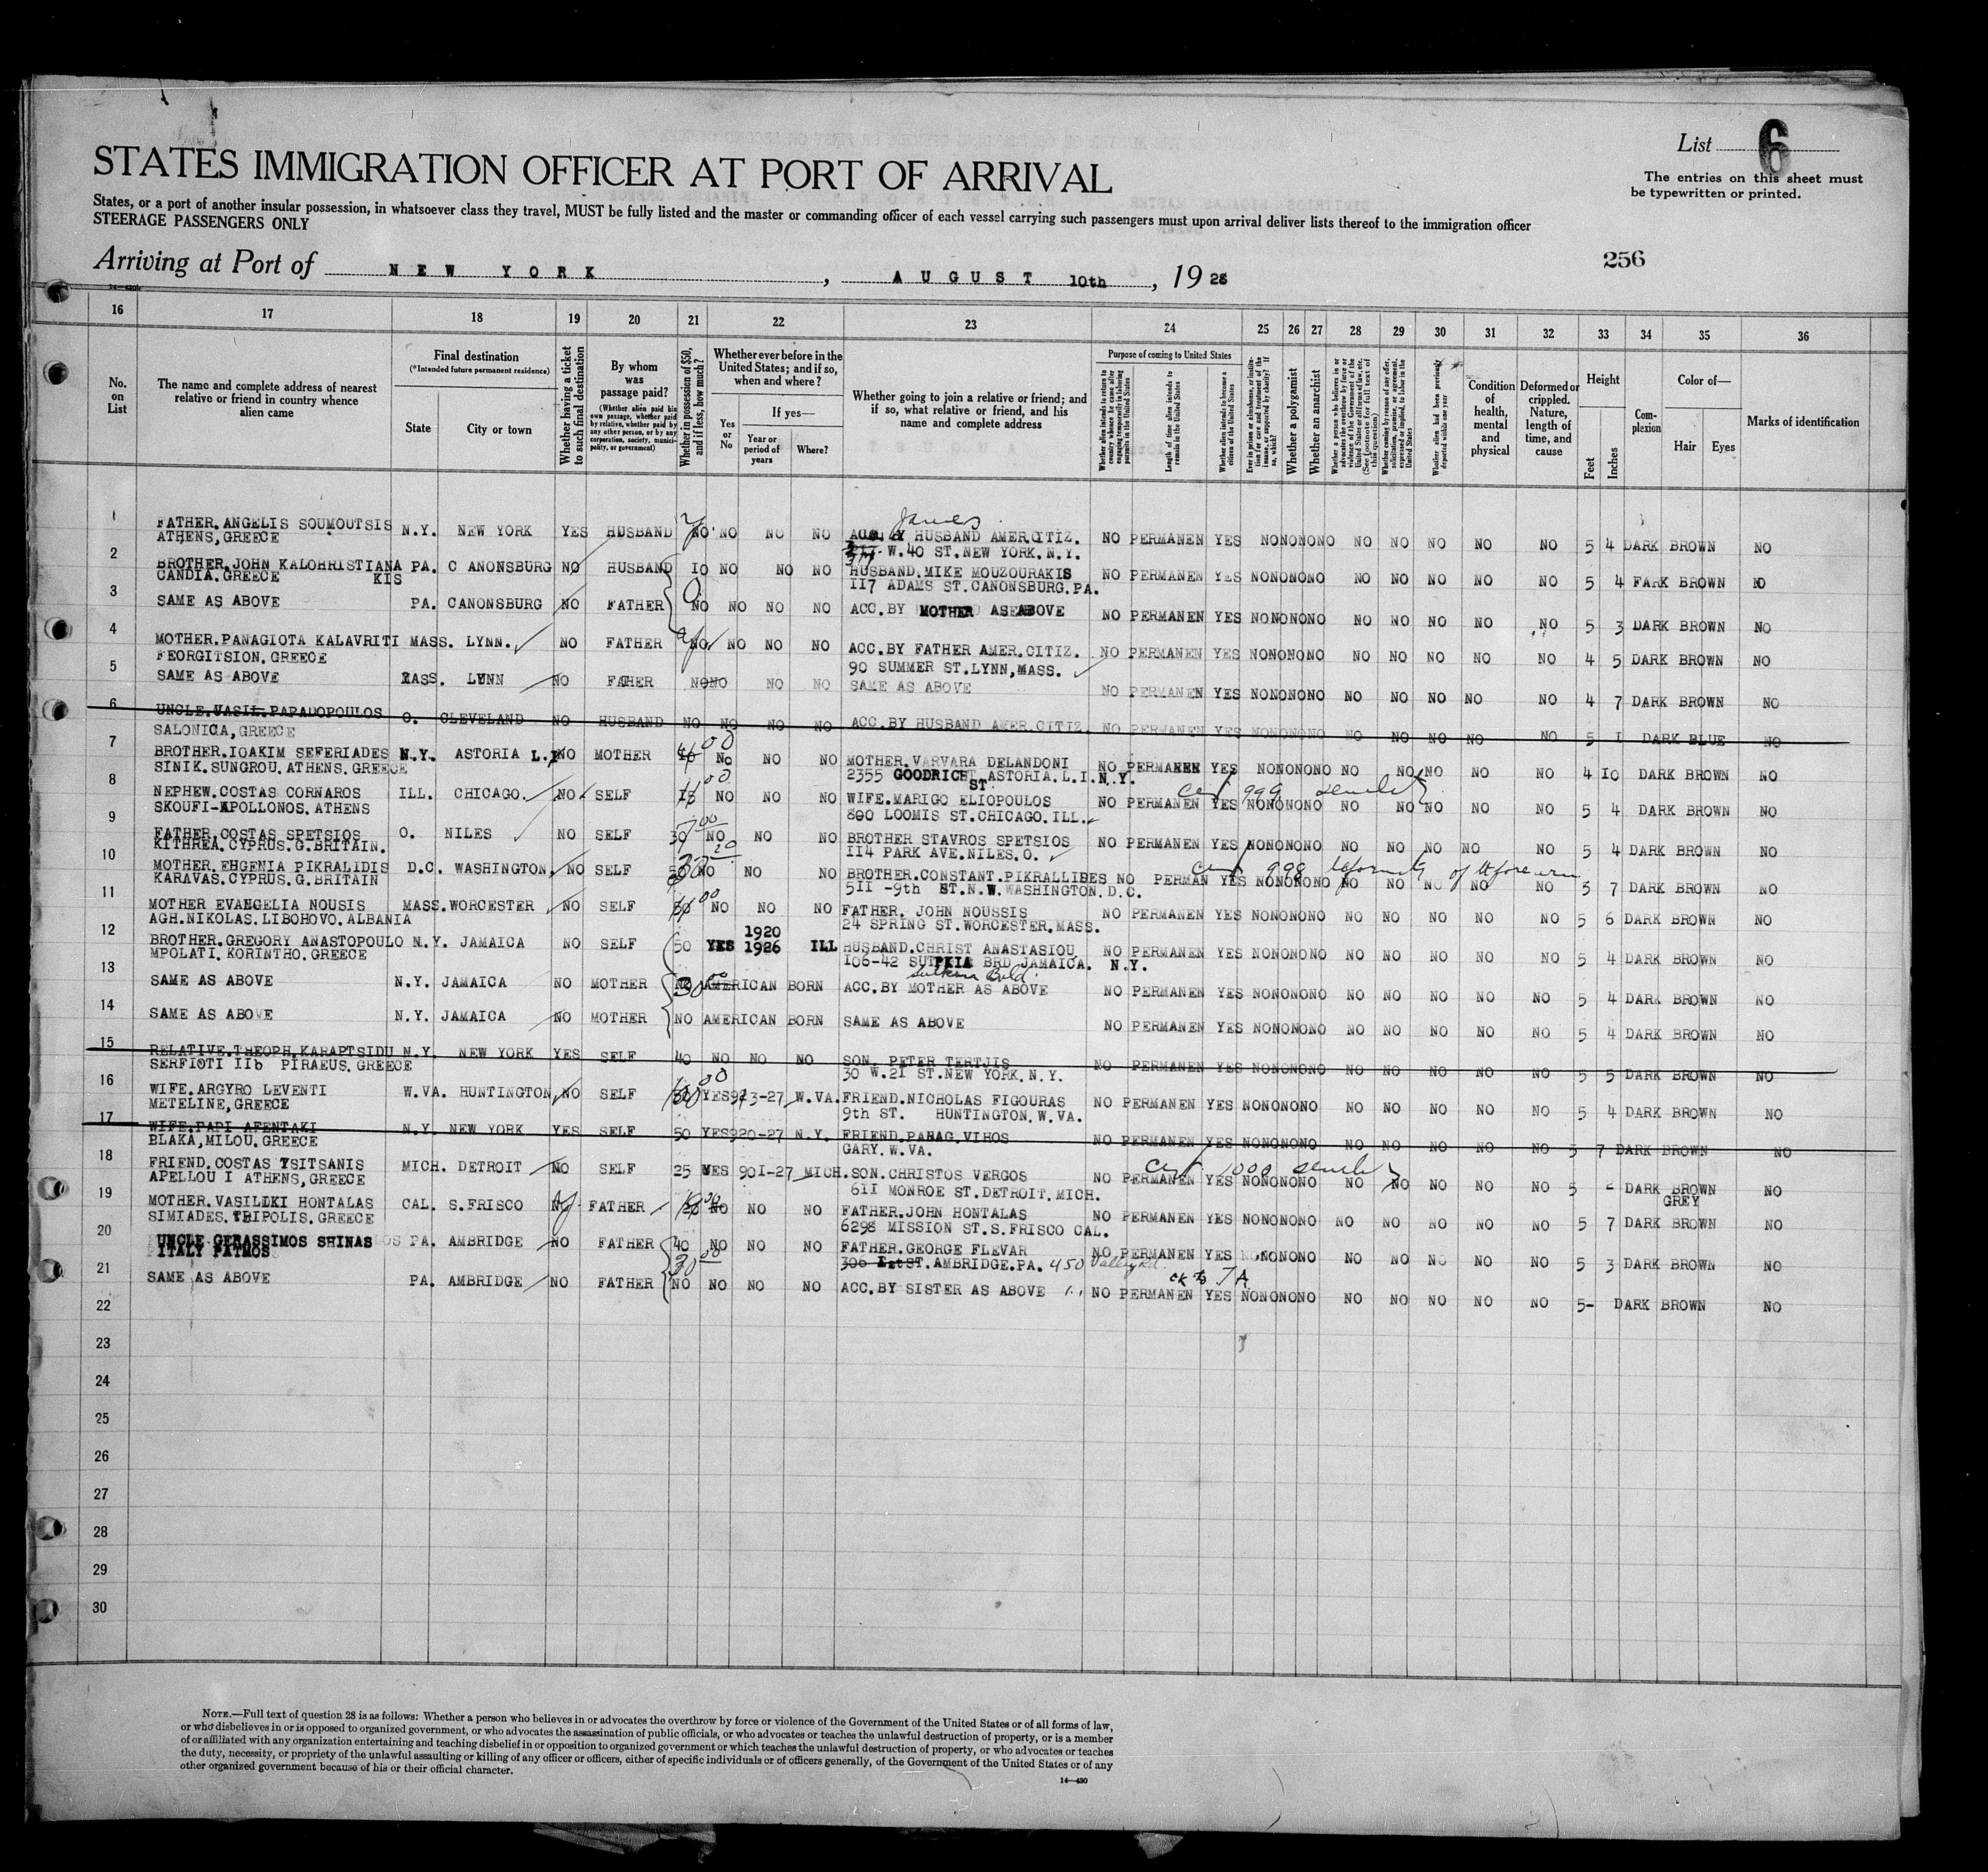 List 6
The entries on this sheet must
be typewritten or printed.
STATES IMMIGRATION OFFICER AT PORT OF ARRIVAL
States, or a port of another insular possession, in whatsoever class they travel, MUST be fully listed and the master or commanding officer of each vessel carrying such passengers must upon arrival deliver lists thereof to the immigration officer
STEERAGE PASSENGERS ONLY
256
Arriving at Port of NEW YORK, AUGUST 10th, 19 28
16 17 18 19 20 21 22 23 24 25 26 27 28 29 30 31 32 33 34 35 36
No. on List
The name and complete address of nearest relative or friend in country whence alien came
Final destination (*Intended future permanent residence)
State
City or town
Whether having a ticket to such final destination
By whom was passage paid?
(Whether alien paid his own passage, whether paid by relative, whether paid by any other person, or by any corporation, society, municipality, or government)
Whether in possession of $50, and if less, how much?
Whether ever before in the United States; and if so, when and where?
Yes or No
If yes—
Year or period of years
Where?
Whether going to join a relative or friend; and if so, what relative or friend, and his name and complete address
Purpose of coming to United States
Whether alien intends to return to country whence he came after engaging temporarily in laboring pursuits in the United States
Length of time alien intends to remain in the United States
Whether alien intends to become a citizen of the United States
Ever in prison or almshouse, or institution for care and treatment of the insane, or supported by charity? If so, which?
Whether a polygamist
Whether an anarchist
Whether a person who believes in or advocates the overthrow by force or violence of the Government of the United States or all forms of law, etc. (See footnote for full text of this question)
Whether coming by reason of any offer, solicitation, promise, or agreement, expressed or implied, to labor in the United States
Whether alien had been previously deported within one year
Condition of health, mental and physical
Deformed or crippled. Nature, length of time, and cause
Height
Feet
Inches
Complexion
Color of—
Hair
Eyes
Marks of identification
1 FATHER.ANGELIS SOUMOUTSIS N.Y. NEW YORK YES HUSBAND NO NO NO NO ACC. BY HUSBAND AMER.CITIZ. NO PERMANEN YES NONONONO NO NO NO NO NO 5 4 DARK BROWN NO
James
ATHENS,GREECE W.40 ST.NEW YORK.N.Y.
2 BROTHER.JOHN KALOHRISTIANA PA. CANONSBURG NO HUSBAND 10 NO NO NO HUSBAND.MIKE MOUZOURAKIS NO PERMANEN YES NONONONO NO NO NO NO NO 5 4 FARK BROWN NO
CANDIA.GREECE KIS 117 ADAMS ST.CANONSBURG.PA.
3 SAME AS ABOVE PA. CANONSBURG NO FATHER NO NO NO NO ACC.BY MOTHER AS ABOVE NO PERMANEN YES NONONONO NO NO NO NO NO 5 3 DARK BROWN NO
4 MOTHER.PANAGIOTA KALAVRITI MASS. LYNN. NO FATHER NO NO NO NO ACC.BY FATHER AMER.CITIZ. NO PERMANEN YES NONONONO NO NO NO NO NO 4 5 DARK BROWN NO
FEORGITSION.GREECE 90 SUMMER ST.LYNN,MASS.
5 SAME AS ABOVE MASS. LYNN NO FATHER NONO NO NO SAME AS ABOVE NO PERMANEN YES NONONONO NO NO NO NO NO 4 7 DARK BROWN NO
6 UNCLE.VASIL.PAPADOPOULOS O. CLEVELAND NO HUSBAND NO NO NO NO ACC.BY HUSBAND AMER.CITIZ. NO PERMANEN YES NONONONO NO NO NO NO NO 5 1 DARK BLUE NO
SALONICA,GREECE
7 BROTHER.IOAKIM SEFERIADES N.Y. ASTORIA L.I NO MOTHER NO NO NO MOTHER.VARVARA DELANDONI NO PERMANEN YES NONONONO NO NO NO NO NO 4 10 DARK BROWN NO
SINIK.SUNGROU.ATHENS.GREECE 2355 GOODRICH ST ASTORIA.L.I.N.Y.
8 NEPHEW.COSTAS CORNAROS ILL. CHICAGO. NO SELF NO NO NO WIFE.MARIGO ELIOPOULOS NO PERMANEN YES NONONONO NO NO NO NO NO 5 4 DARK BROWN NO
Cert 999 senility
SKOUFI-APOLLONOS.ATHENS 800 LOOMIS ST.CHICAGO.ILL.
9 FATHER.COSTAS SPETSIOS O. NILES NO SELF 30 NO NO NO BROTHER STAVROS SPETSIOS NO PERMANEN YES NONONONO NO NO NO NO NO 5 4 DARK BROWN NO
KITHREA.CYPRUS.G.BRITAIN. 114 PARK AVE.NILES.O.
10 MOTHER.EHGENIA PIKRALIDIS D.C. WASHINGTON. NO SELF NO NO NO BROTHER.CONSTANT.PIKRALLIDES NO PERMAN YES NONONONO NO NO NO NO NO 5 7 DARK BROWN NO
Cert 998 deformity of forearm
KARAVAS.CYPRUS.G.BRITAIN 511 -9th ST.N.W.WASHINGTON.D.C.
11 MOTHER EVANGELIA NOUSIS MASS.WORCESTER NO SELF NO NO NO FATHER. JOHN NOUSSIS NO PERMANEN YES NONONONO NO NO NO NO NO 5 6 DARK BROWN NO
AGH.NIKOLAS.LIBOHOVO.ALBANIA 24 SPRING ST.WORCESTER.MASS.
12 BROTHER.GREGORY ANASTOPOULO N.Y. JAMAICA NO SELF 50 YES 1920 1926 ILL HUSBAND.CHRIST ANASTASIOU NO PERMANEN YES NONONONO NO NO NO NO NO 5 4 DARK BROWN NO
MPOLATI.KORINTHO.GREECE 106-42 SUTPKIA BRD JAMAICA. N.Y.
13 SAME AS ABOVE N.Y. JAMAICA NO MOTHER NO AMERICAN BORN ACC.BY MOTHER AS ABOVE NO PERMANEN YES NONONONO NO NO NO NO NO 5 4 DARK BROWN NO
14 SAME AS ABOVE N.Y. JAMAICA NO MOTHER NO AMERICAN BORN SAME AS ABOVE NO PERMANEN YES NONONONO NO NO NO NO NO 5 4 DARK BROWN NO
15 RELATIVE.THEOPH.KARAPTSIDU N.Y. NEW YORK YES SELF 40 NO NO NO SON. PETER TERTJIS NO PERMANEN YES NONONONO NO NO NO NO NO 5 5 DARK BROWN NO
SERFIOTI IIb PIRAEUS.GREECE 30 W.21 ST.NEW YORK.N.Y.
16 WIFE.ARGYRO LEVENTI W.VA. HUNTINGTON, NO SELF YES 913-27 W.VA. FRIEND.NICHOLAS FIGOURAS NO PERMANEN YES NONONONO NO NO NO NO NO 5 4 DARK BROWN NO
METELINE,GREECE 9th ST. HUNTINGTON.W.VA.
17 WIFE.PAPI AFENTAKI N.Y. NEW YORK YES SELF 50 YES 920-27 N.Y. FRIEND.PANAG.VIHOS NO PERMANEN YES NONONONO NO NO NO NO NO 5 7 DARK BROWN NO
BLAKA,MILOU.GREECE GARY.W.VA.
18 FRIEND.COSTAS TSITSANIS MICH. DETROIT NO SELF 25 YES 901-27 MICH.SON.CHRISTOS VERGOS NO PERMANEN YES NONONONO NO NO NO NO NO 5 - DARK BROWN NO
Cert 1000 senility
APELLOU I ATHENS,GREECE 611 MONROE ST.DETROIT.MICH. GREY
19 MOTHER.VASILIKI HONTALAS CAL. S.FRISCO NO FATHER NO NO NO FATHER.JOHN HONTALAS NO PERMANEN YES NONONONO NO NO NO NO NO 5 7 DARK BROWN NO
SIMIADES.TRIPOLIS.GREECE 6298 MISSION ST.S.FRISCO CAL.
20 UNCLE GERASSIMOS SHINAS PA. AMBRIDGE NO FATHER 40 NO NO NO FATHER.GEORGE FLEVAR NO PERMANEN YES NONONONO NO NO NO NO NO 5 3 DARK BROWN NO
ITALY PATMOS 306 1st ST.AMBRIDGE.PA. 450 Valley Rd.
21 SAME AS ABOVE PA. AMBRIDGE NO FATHER NO NO NO NO ACC.BY SISTER AS ABOVE NO PERMANEN YES NONONONO NO NO NO NO NO 5- DARK BROWN NO
22
23
24
25
26
27
28
29
30
NOTE.—Full text of question 28 is as follows: Whether a person who believes in or advocates the overthrow by force or violence of the Government of the United States or of all forms of law,
or who disbelieves in or is opposed to organized government, or who advocates the assassination of public officials, or who advocates or teaches the unlawful destruction of property, or is a member
of or affiliated with any organization entertaining and teaching disbelief in or opposition to organized government or which teaches the unlawful destruction of property, or who advocates or teaches
the duty, necessity, or propriety of the unlawful assaulting or killing of any officer or officers, either of specific individuals or of officers generally, of the Government of the United States or of any
other organized government because of his or their official character.
14—430